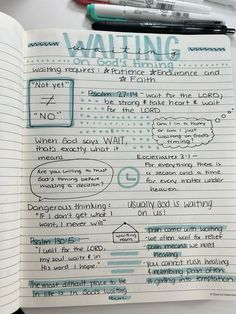 WAITING
on God's timing
waiting requires: ☆Patience ☆Endurance and
☆Faith
"Not yet"
≠
"NO"
Psalm 27:14 "wait for the LORD;
be strong & take heart & wait
for the LORD.
Am I in a hurry
or am I just
waiting on God's
timing?
When God says WAIT,
that's exactly what it
means.
Ecclesiastes 3:1 –
For everything there is
a season and a time
for every matter under
heaven.
Are you willing to trust
God's timing before
making a decision?
Dangerous thinking:
"If I don't get what I
want, I never will"
Usually God is waiting
on us!
Psalm 130:5
"I wait for the LORD,
my soul waits & in
His word I hope."
waiting
room
pain comes with waiting
we often wait for relief
pain means we need
healing
you cannot rush healing
& numbing pain often
is giving into temptation.
The most difficult place to be
in life is in God's waiting
room.